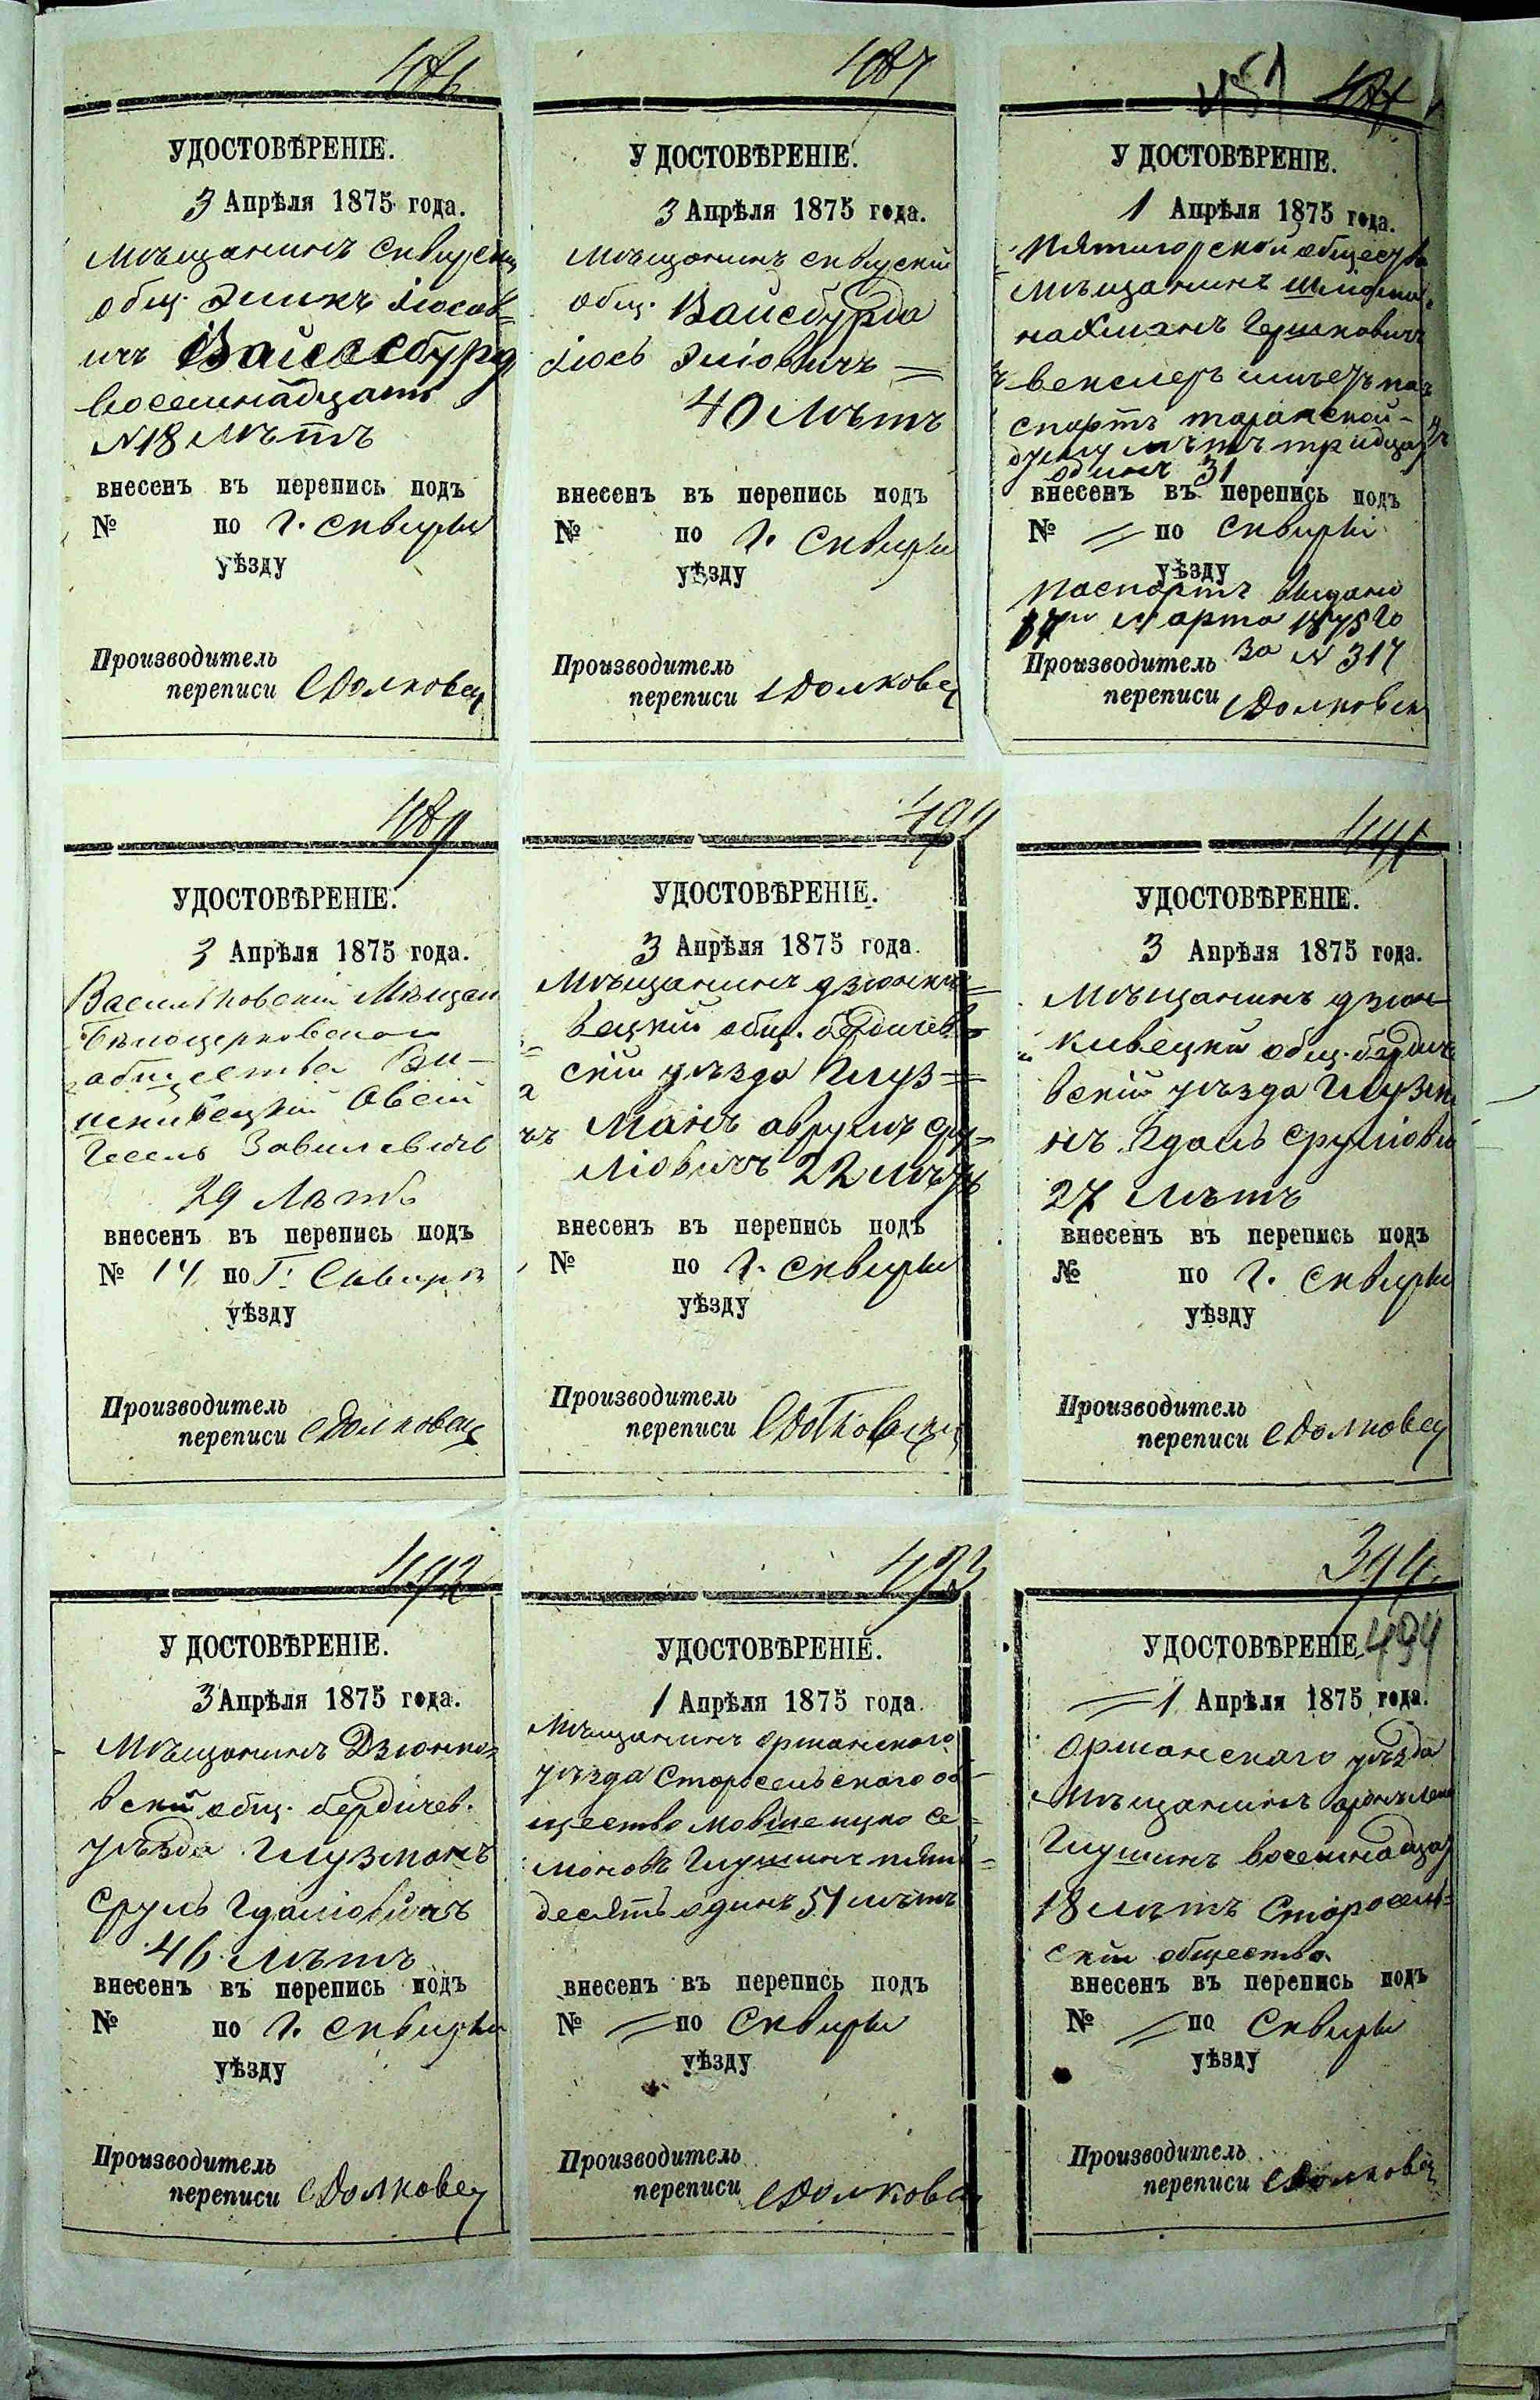 486
УДОСТОВѢРЕНІЕ.
3 Апрѣля 1875 года.
Мѣщанинъ Сквирскій
общ. Эликъ Іосов=
ичъ Вайсбурд
восемнадцать
№ 18 лѣтъ
внесенъ въ перепись подъ
№ по г. Сквиры
уѣзду
Производитель
переписи
487
УДОСТОВѢРЕНІЕ.
3 Апрѣля 1875 года.
Мѣщанинъ Сквускій
общ. Вайсбурдо
Іось Эліовичъ =
40 лѣтъ
внесенъ въ перепись подъ
№ по г. Сквиры
уѣзду
Производитель
переписи
УДОСТОВѢРЕНІЕ.
1 Апрѣля 1875 года.
Пятигорской общества
мѣщанинъ Шліома
нахманъ Гершковичъ
векслеръ имѣетъ пас
спортъ таранской -
думы лѣтъ тридцать
одинъ 31
внесенъ въ перепись подъ
№ = по Сквиры
уѣзду
паспортъ выдано
17го Марта 1875го
Производитель за N 317
переписи
489
УДОСТОВѢРЕНІЕ.
3 Апрѣля 1875 года.
Васильковскій Мѣщан
Бѣлоцерковскаго
общества
Овсій
Гесель
29 Лѣтъ
внесенъ въ перепись подъ
№ 14 по Г. Сквирѣ
уѣзду
Производитель
переписи
УДОСТОВѢРЕНІЕ.
3 Апрѣля 1875 года.
Мѣщанинъ дзюнки=
вецкій общ. бердичев=
скій уѣзда Глуз=
манъ аврумъ сру=
ліовичъ 22 лѣтъ
внесенъ въ перепись подъ
№ по г. Сквиры
уѣзду
Производитель
переписи
491
УДОСТОВѢРЕНІЕ.
3 Апрѣля 1875 года.
Мѣщанинъ дзюн-
кивецкій общ. бердиче
вскій уѣзда Глузма
нъ Гдаль Сруліови
27 лѣтъ
внесенъ въ перепись подъ
№ по г. Сквиры
уѣзду
Производитель
переписи
492
УДОСТОВѢРЕНІЕ.
3 Апрѣля 1875 года.
Мѣщанинъ Дзюнко=
вскій общ. бердичев.
уѣзда Глузманъ
Сруль Гдаліовичъ
46 лѣтъ
внесенъ въ перепись подъ
№ по г. Сквиры
уѣзду
Производитель
переписи
493
УДОСТОВѢРЕНІЕ.
1 Апрѣля 1875 года.
Мѣщанинъ Оршанского
уѣзда Старосельского об
щество Мовше ицко Се=
моновъ Глушинъ пять=
десятъ одинъ 51 лѣтъ
внесенъ въ перепись подъ
№ = по Сквиры
уѣзду
Производитель
переписи
394
494
УДОСТОВѢРЕНІЕ.
= 1 Апрѣля 1875 года.
Оршанскаго уѣзда
Мѣщанинъ
Глушинъ восемнадцать
18 лѣтъ Старосель=
скій общество
внесенъ въ перепись подъ
№ = по Сквиры
уѣзду
Производитель
переписи